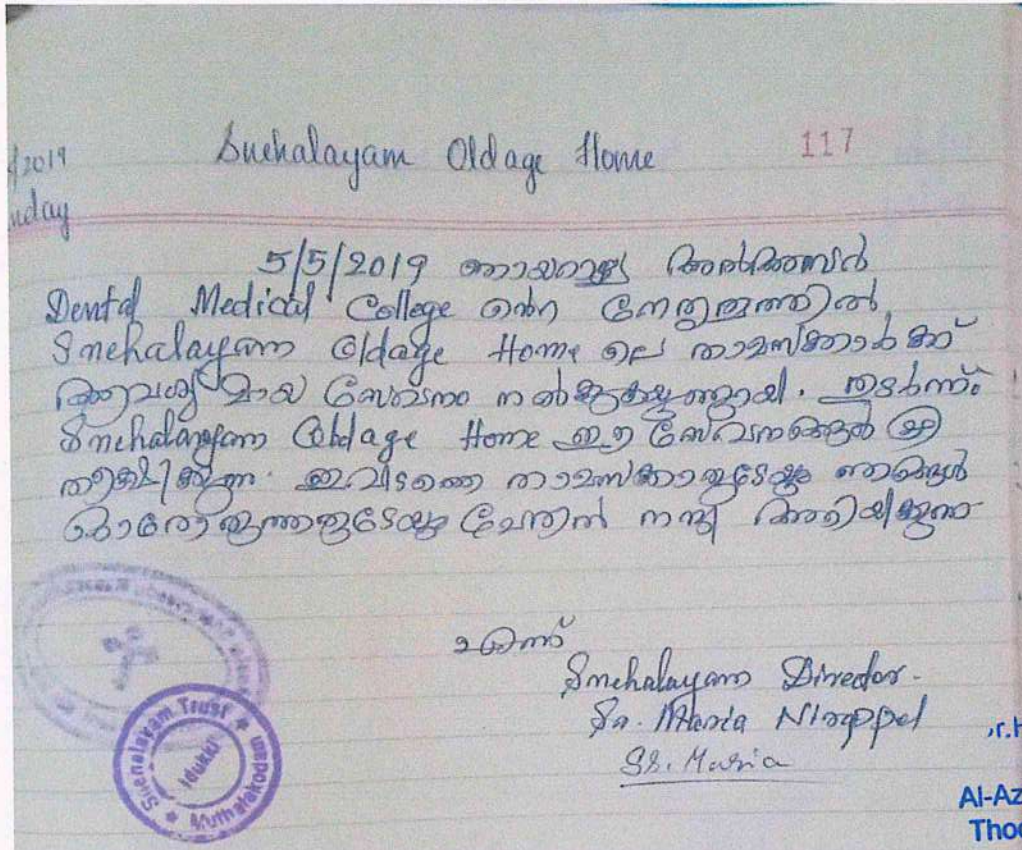 /2019
nday
Snehalayam Oldage Home
117
5/5/2019 ഞായറാഴ്ച അൽഅസർ
Dental Medical College ന്റെ നേതൃത്വത്തിൽ
Snehalayam Oldage Home ലെ താമസക്കാർക്ക്
ആവശ്യമായ സേവനം നൽകുകയുണ്ടായി. തുടർന്നും
Snehalayam Oldage Home ഈ സേവനങ്ങൾ
ഇവിടത്തെ താമസക്കാരുടേയും ഞങ്ങൾ
ഓരോരുത്തരുടേയും പേരിൽ നന്ദി അറിയിക്കുന്നു
എന്ന്
Snehalayam Director.
Sr. Maria Nirappel
Sr. Maria
Snehalayam Trust
Idukki
Muthalakodam
r.h
Al-Az
Thod